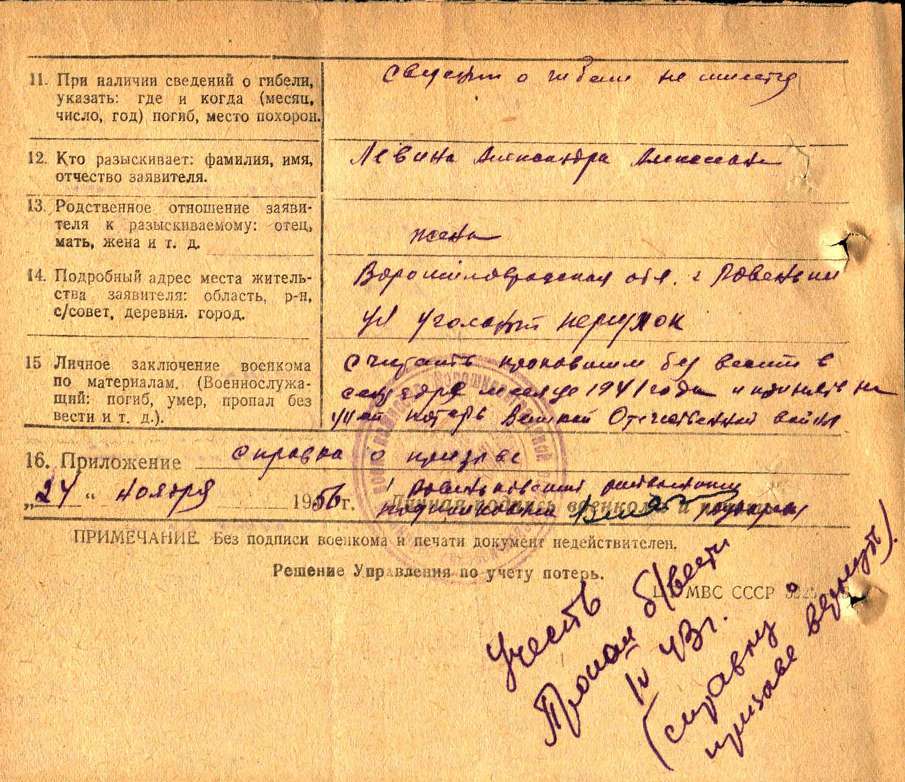 11. При наличии сведений о гибели,
указать: где и когда (месяц,
число, год) погиб, место похорон.
сведений о гибели не имеется
12. Кто разыскивает: фамилия, имя,
отчество заявителя.
Левина Александра
13. Родственное отношение заяви-
теля к разыскиваемому: отец,
мать, жена и т. д.
жена
14. Подробный адрес места житель-
ства заявителя: область, р-н,
с/совет, деревня. город.
Ворошиловградская обл. г Ровеньки
ул Угольный переулок
15 Личное заключение военкома
по материалам. (Военнослужа-
щий: погиб, умер, пропал без
вести и т. д.).
считать пропавшим без вести в
месяце 1941 года и принять на
учет потерь Великой Отечественной войны
16. Приложение справка о призыве
„24 “ ноября 1956 г. Личная подпись военкома и печать
Ровеньковский
подполковник
ПРИМЕЧАНИЕ. Без подписи военкома и печати документ недействителен.
Решение Управления по учету потерь.
МВС СССР
Учесть
Пропал б/вести
IV 43 г.
(справку о
призыве вернуть).